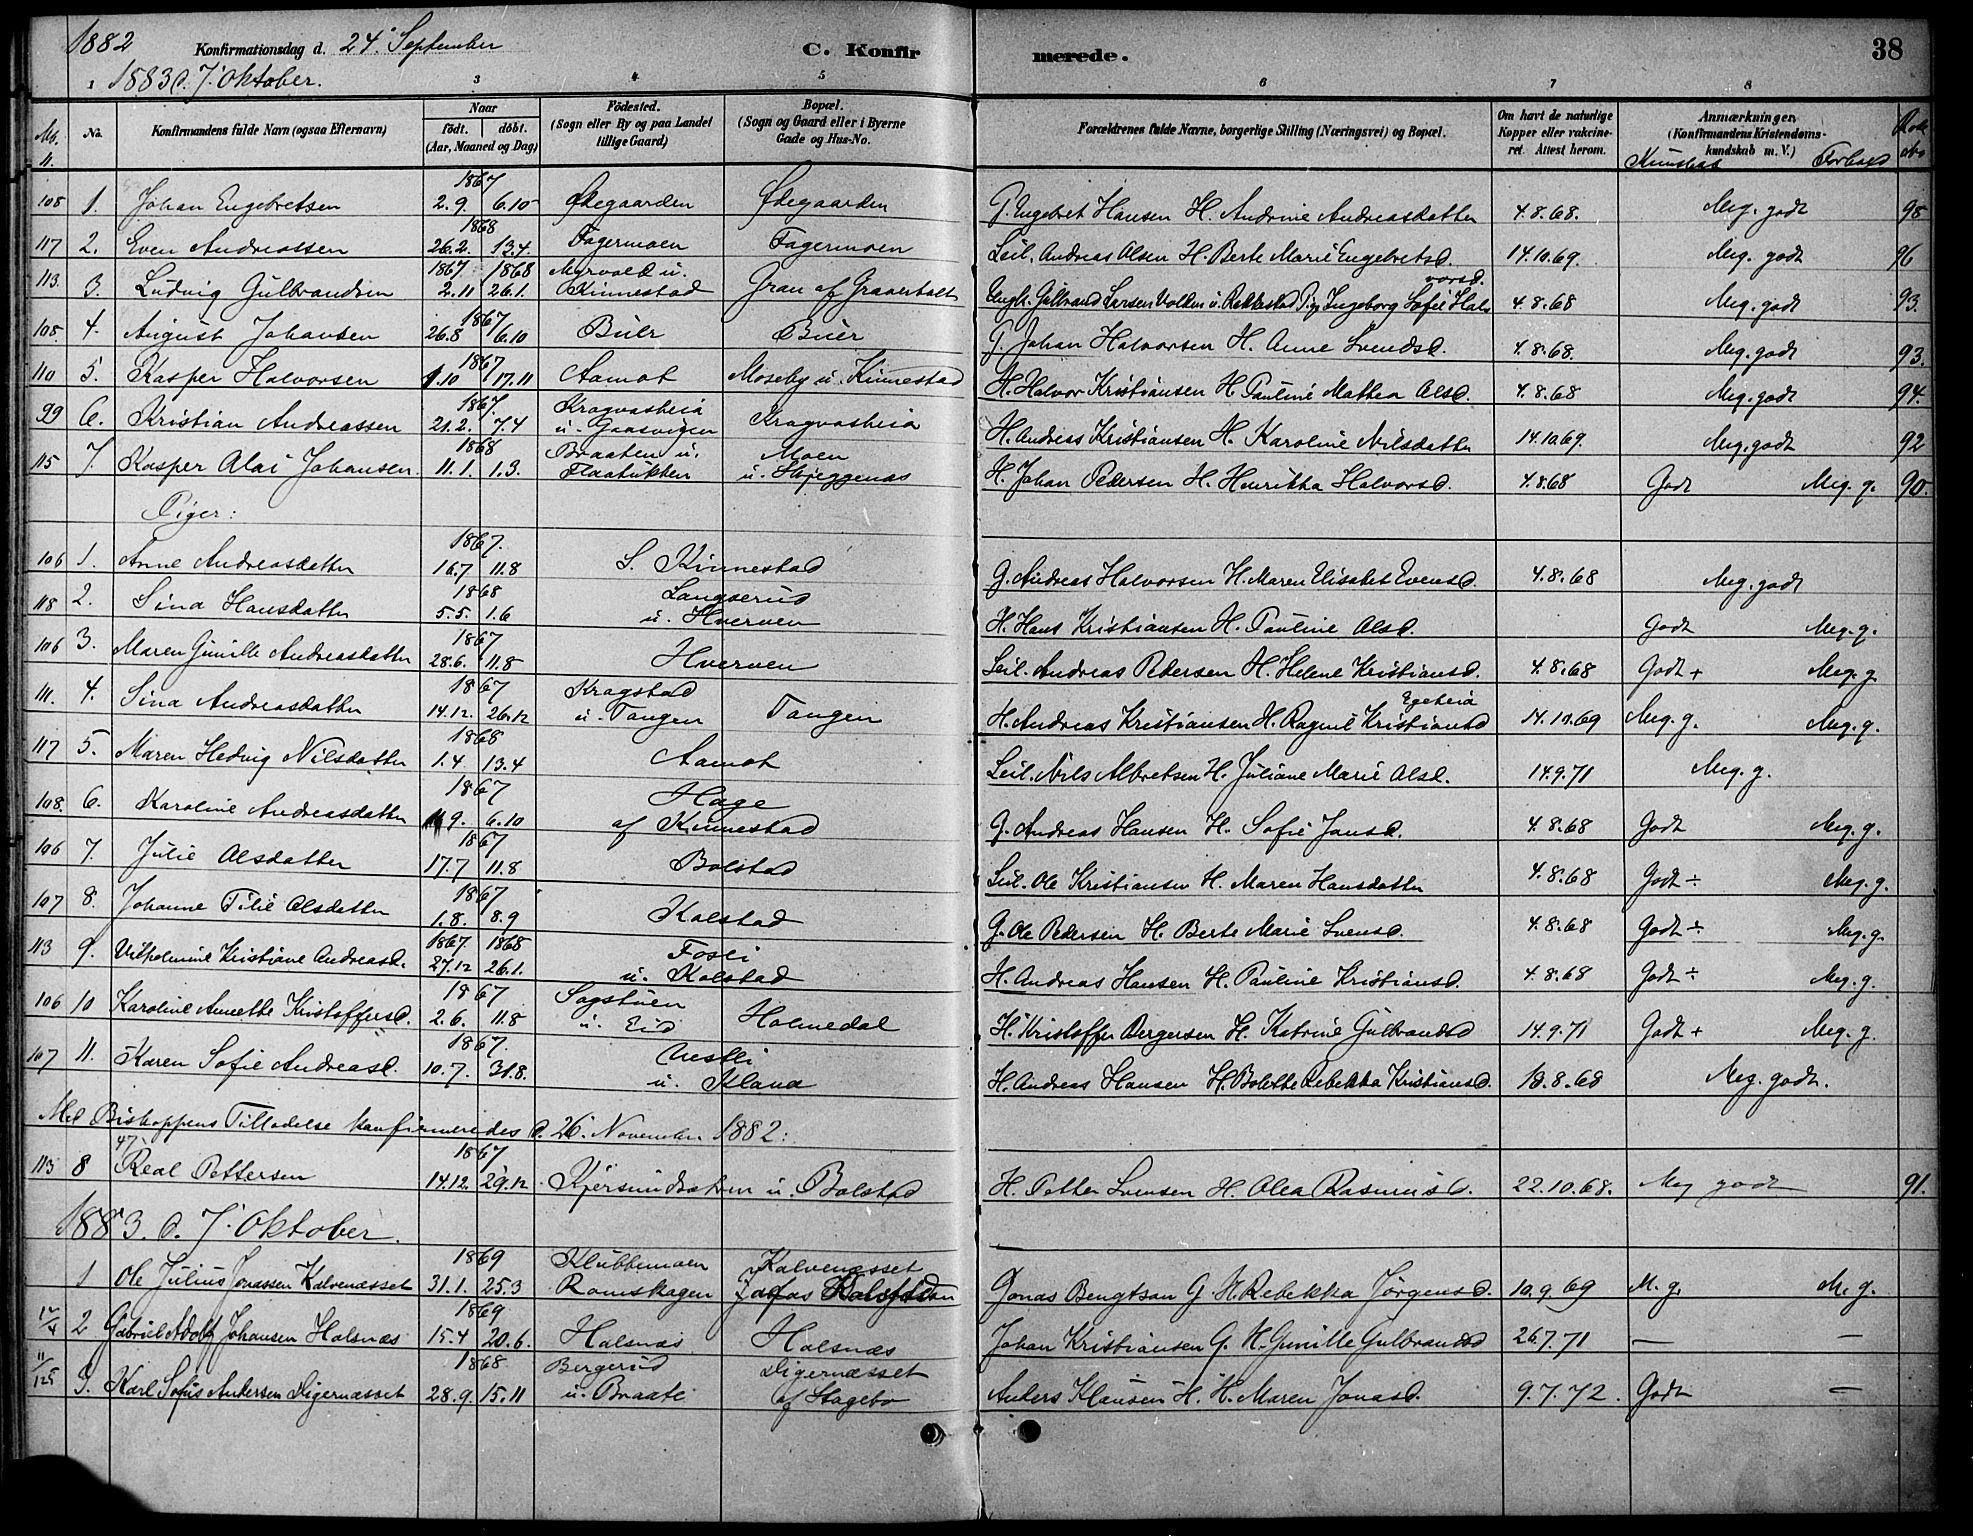 1882 Konfirmationsdag d. 24' September C. Konfirmerede. 38
1883 d. 7' Oktober.
1 3 4 5 6 7 8
No. Konfirmandens fulde Navn (ogsaa Efternavn) Naar födt. döbt. (Aar, Maaned og Dag) Födested. (Sogn eller By og paa Landet tillige Gaard) Bopæl. (Sogn og Gaard eller i Byerne Gade og Hus-No. Forældrenes fulde Navne, borgerlige Stilling (Næringsvei) og Bopæl. Om havt de naturlige Kopper eller vakcineret. Attest herom. Anmærkninger, (Konfirmandens Kristendomskundskab m. V.) Kunskab Forhold
108 1. Johan Engebretsen 1867 2.9. 6.10 Ødegaarden Ødegaarden G. Engebret Hansen H. Andrine Andreasdatter 4.8.68. Meg. godt 98
117 2. Even Andreassen 1868 26.2. 13.4. Fagermoen Fagermoen Leil. Andreas Olsen H. Berte Marie Engebretsd. 14.10.69. Meg. godt 96
113. 3. Ludvig Gulbrandsen 1867 2.11 1868 26.1. Myrvold u. Kinnestad Gran af Graverholt Ungk. Gulbrand Larsen u. Rakkestad Pige Ingeborg Sofie Halvorsd. 4.8.68 Meg. godt 93.
108. 4. August Johansen 1867 26.8 6.10 Buer Buer G. Johan Halvorsen H. Anne Svendsd. 4.8.68. Meg. godt 93.
110 5. Kasper Halvorsen 1867 1.10 17.11 Aamot Moseby u. Kinnestad H. Halvor Kristiansen H. Pauline Mathea Olsd. 4.8.68 Meg. godt 94.
99 6. Kristian Andreassen 1867. 21.2. 7.4 Kragvasheia u. Gaasvigen Kragvasheia H. Andreas Kristiansen H. Karoline Nilsdatter 14.10.69. Meg. godt 92
115 7. Kasper Olai Johansen. 1868 11.1. 1.3. Braaten u. Flaatukken Moen u. Skjeggenæs H. Johan Pedersen H. Henrikka Halvorsd. 4.8.68 Godt Meg. g. 90.
Piger:
106 1. Anne Andreasdatter 1867. 16.7 11.8 S. Kinnestad G. Andreas Halvorsen H. Maren Elisabet Evensd. 4.8.68 Meg. godt
118 2. Sina Hansdatter 1868 5.5. 1.6 Langserud u. Hverven H. Hans Kristiansen H. Pauline Olsd. Godt Meg. g.
106 3. Maren Gunille Andreasdatter 1867 28.6. 11.8 Hverven Leil. Andreas Pedersen H. Helene Kristiansd. 4.8.68 Godt + Meg. g.
111. 4. Sina Andreasdatter 1867 14.12. 26.12 Kragstad u. Tangen Tangen H. Andreas Kristiansen H. Ragnil Kristiansd Egeheia 14.10.69 Meg. g. Meg. g.
117 5. Maren Hedvig Nilsdatter 1868 1.4 13.4 Aamot Leil. Nils Albretsen H. Juliane Marie Olsd. 14.9.71 Meg. g.
108. 6. Karoline Andreasdatter 1867 9. 6.10 Hage af Kinnestad G. Andreas Hansen H. Sofie Jansd. 4.8.68 Godt Meg. g.
106 7. Julie Olsdatter 1867 17.7 11.8 Bolstad Leil. Ole Kristiansen H. Maren Hansdatter 4.8.68 Godt ÷ Meg. g.
107 8. Johanne Tilie Olsdatter 1867 1.8. 8.9 Kolstad G. Ole Pedersen H. Berte Marie Svensd. 4.8.68 Godt ÷ Meg. g.
113 9. Vilhelmine Kristiane Andreasd. 1867. 27.12 1868 26.1. Fosli u. Kolstad H. Andreas Hansen H. Pauline Kristiansd. 4.8.68 Godt ÷ Meg. g.
106 10 Karoline Annette Kristoffersd. 1867 2.6. 11.8 Sagstuen u. Eid Holmedal H. Kristoffer Bergersen H. Katrine Gulbrandsd 14.9.71 Godt + Meg. g.
107 11. Karen Sofie Andreasd. 1867. 10.7. 31.8. Nestli u. H. Andreas Hansen H. Bolette Rebekka Kristiansd. 18.8.68 Meg. godt.
Med Bishoppens Tilladelse konfirmeredes d. 26' November 1882:
113 8 47 Real Pettersen 1867 14.12. 29.12 u. Bolstad H. Petter Svensen H. Olea Rasmusd. 22.10.68. Meg godt 91.
1883. d. 7' Oktober.
1 Ole Julius Jonassen Kalvenæsset 1869 31.1. 25.3 Klubbemoen Romskogen Kalvenæsset Jonas Bengtsan G. H. Rebekka Jørgensd. 10.9.69 M. g. M. g.
2 Gabriel Adolf Johansen Holsnæs 1869 15.4 20.6. Holsnæs Holsnæs Johan Kristiansen G. H. Gunille Gulbrandsd 26.7.71 — —
11/125 3. Karl Sofus Andersen Digernæsset 1868 28.9. 15.11 Bergerud u. Braate Digernæsset af Stagebo Anders Klausen H. H. Maren Jonasd. 9.7.72. Godt —